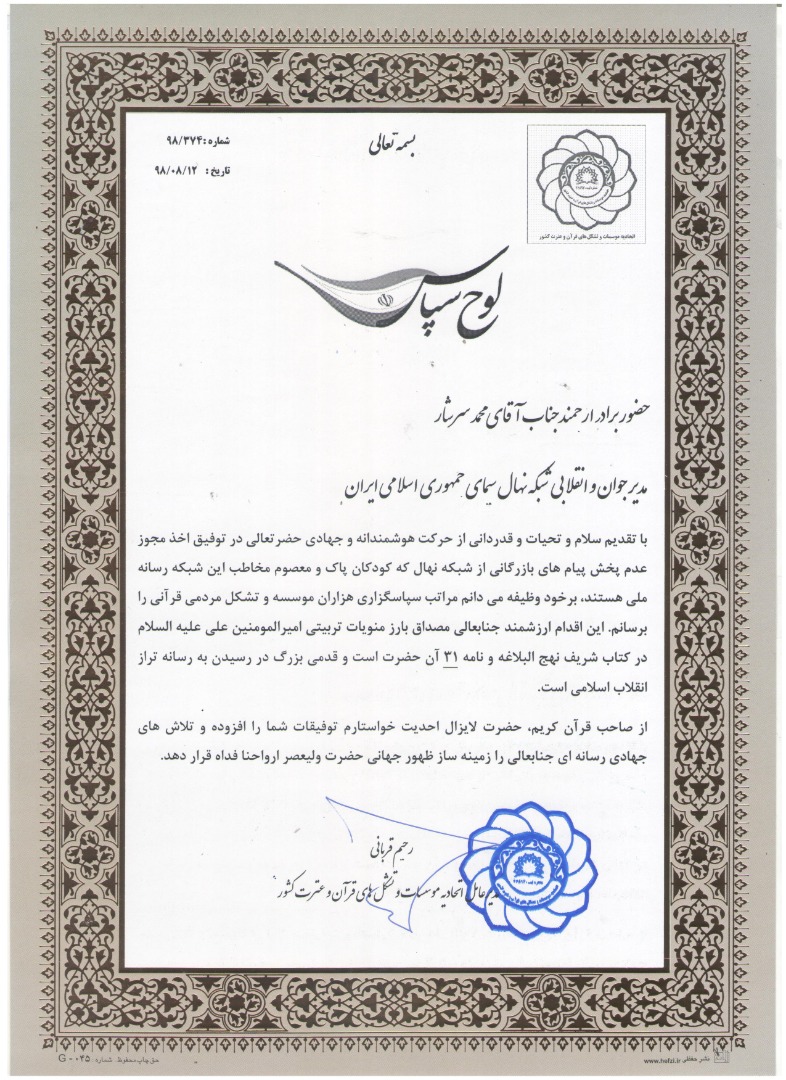 بسمه تعالی
شماره: ۹۸/۳۷۴
تاریخ: ۹۸/۰۸/۱۲
اتحادیه موسسات و تشکل های قرآن و عترت کشور
لوح سپاس
حضور برادر ارجمند جناب آقای محمد سرشار
مدیر جوان و انقلابی شبکه نهال سیمای جمهوری اسلامی ایران
با تقدیم سلام و تحیات و قدردانی از حرکت هوشمندانه و جهادی حضرتعالی در توفیق اخذ مجوز
عدم پخش پیام های بازرگانی از شبکه نهال که کودکان پاک و معصوم مخاطب این شبکه رسانه
ملی هستند، برخود وظیفه می دانم مراتب سپاسگزاری هزاران موسسه و تشکل مردمی قرآنی را
برسانم. این اقدام ارزشمند جنابعالی مصداق بارز منویات تربیتی امیرالمومنین علی علیه السلام
در کتاب شریف نهج البلاغه و نامه ۳۱ آن حضرت است و قدمی بزرگ در رسیدن به رسانه تراز
انقلاب اسلامی است.
از صاحب قرآن کریم، حضرت لایزال احدیت خواستارم توفیقات شما را افزوده و تلاش های
جهادی رسانه ای جنابعالی را زمینه ساز ظهور جهانی حضرت ولیعصر ارواحنا فداه قرار دهد.
رحیم قربانی
مدیر عامل اتحادیه موسسات و تشکل های قرآن و عترت کشور
حق چاپ محفوظ. شماره G - ۰۳۵
نشر حفظی www.hefzi.ir